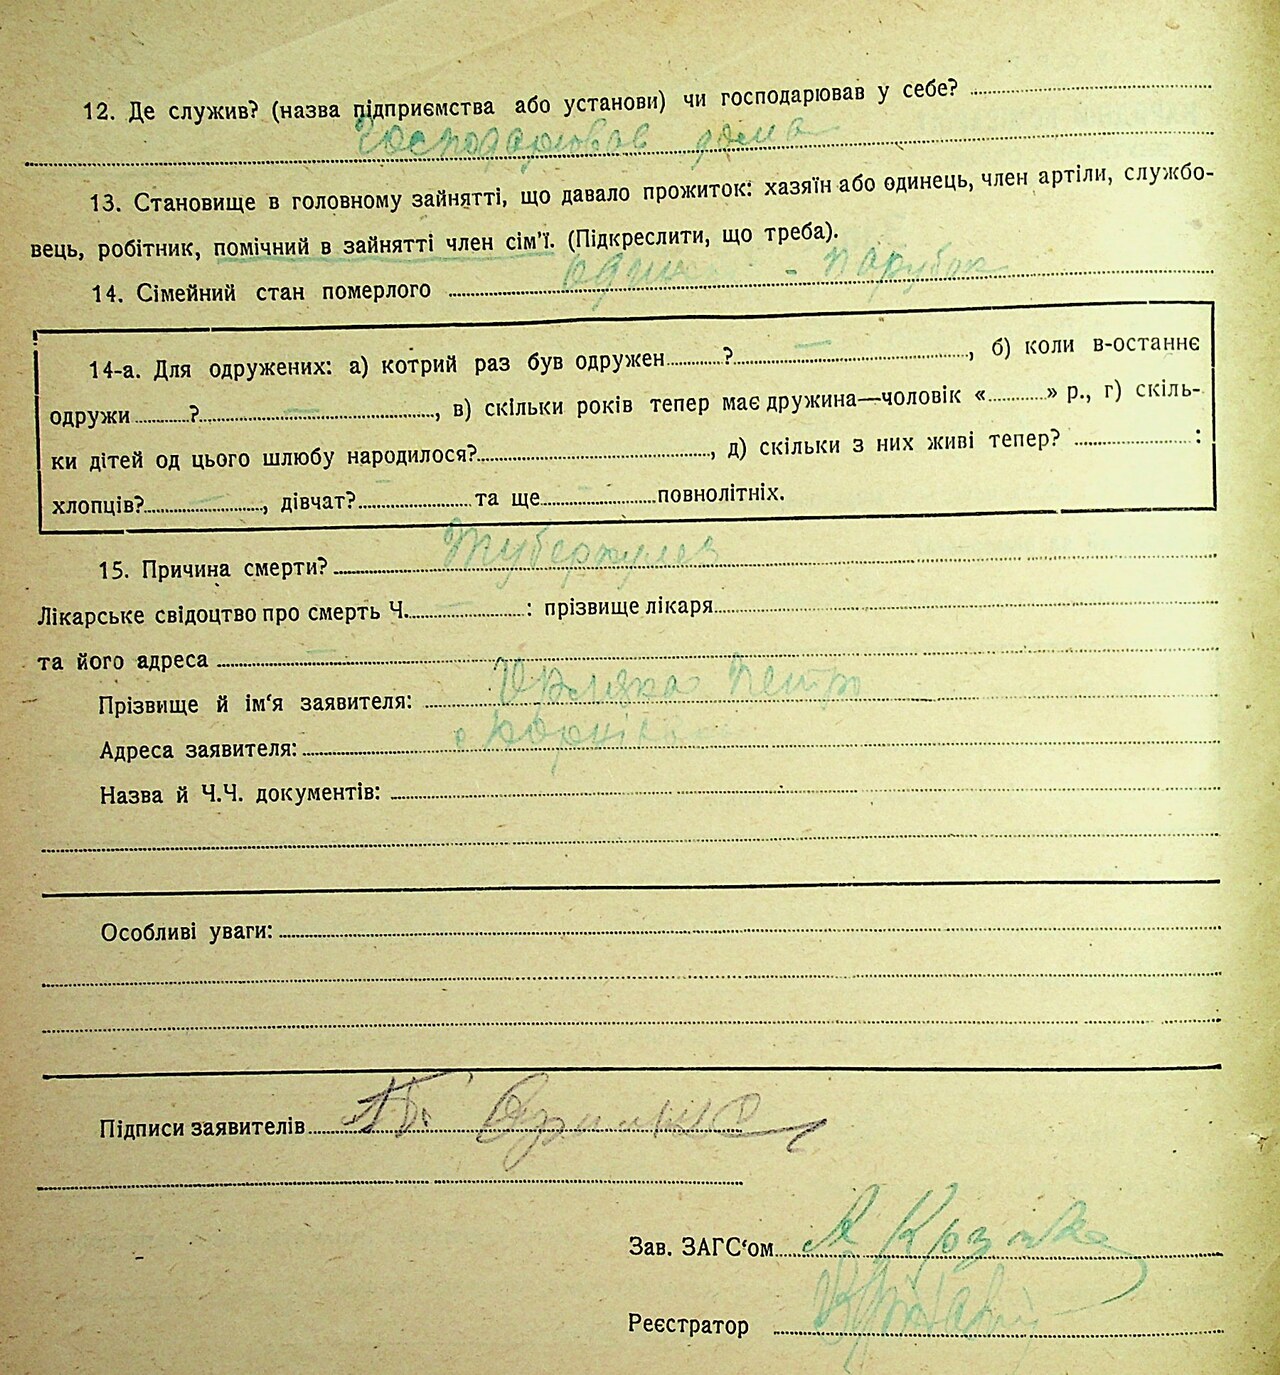 12. Де служив? (назва підприємства або установи) чи господарював у себе?
Господарював дома
13. Становище в головному зайнятті, що давало прожиток: хазяїн або одинець, член артіли, службо-
вець, робітник, помічний в зайнятті член сім'ї. (Підкреслити, що треба).
14. Сімейний стан померлого - парубок
14-а. Для одружених: а) котрий раз був одружен ? — , б) коли в-останнє
одружи ? — , в) скільки років тепер має дружина—чоловік « » р., г) скіль-
ки дітей од цього шлюбу народилося? , д) скільки з них живі тепер? :
хлопців? — , дівчат? — та ще — повнолітніх.
15. Причина смерти? Туберкулез
Лікарське свідоцтво про смерть Ч. — : прізвище лікаря
та його адреса —
Прізвище й ім'я заявителя: Петро
Адреса заявителя:
Назва й Ч.Ч. документів:
Особливі уваги:
Підписи заявителів
Зав. ЗАГС'ом
Реєстратор